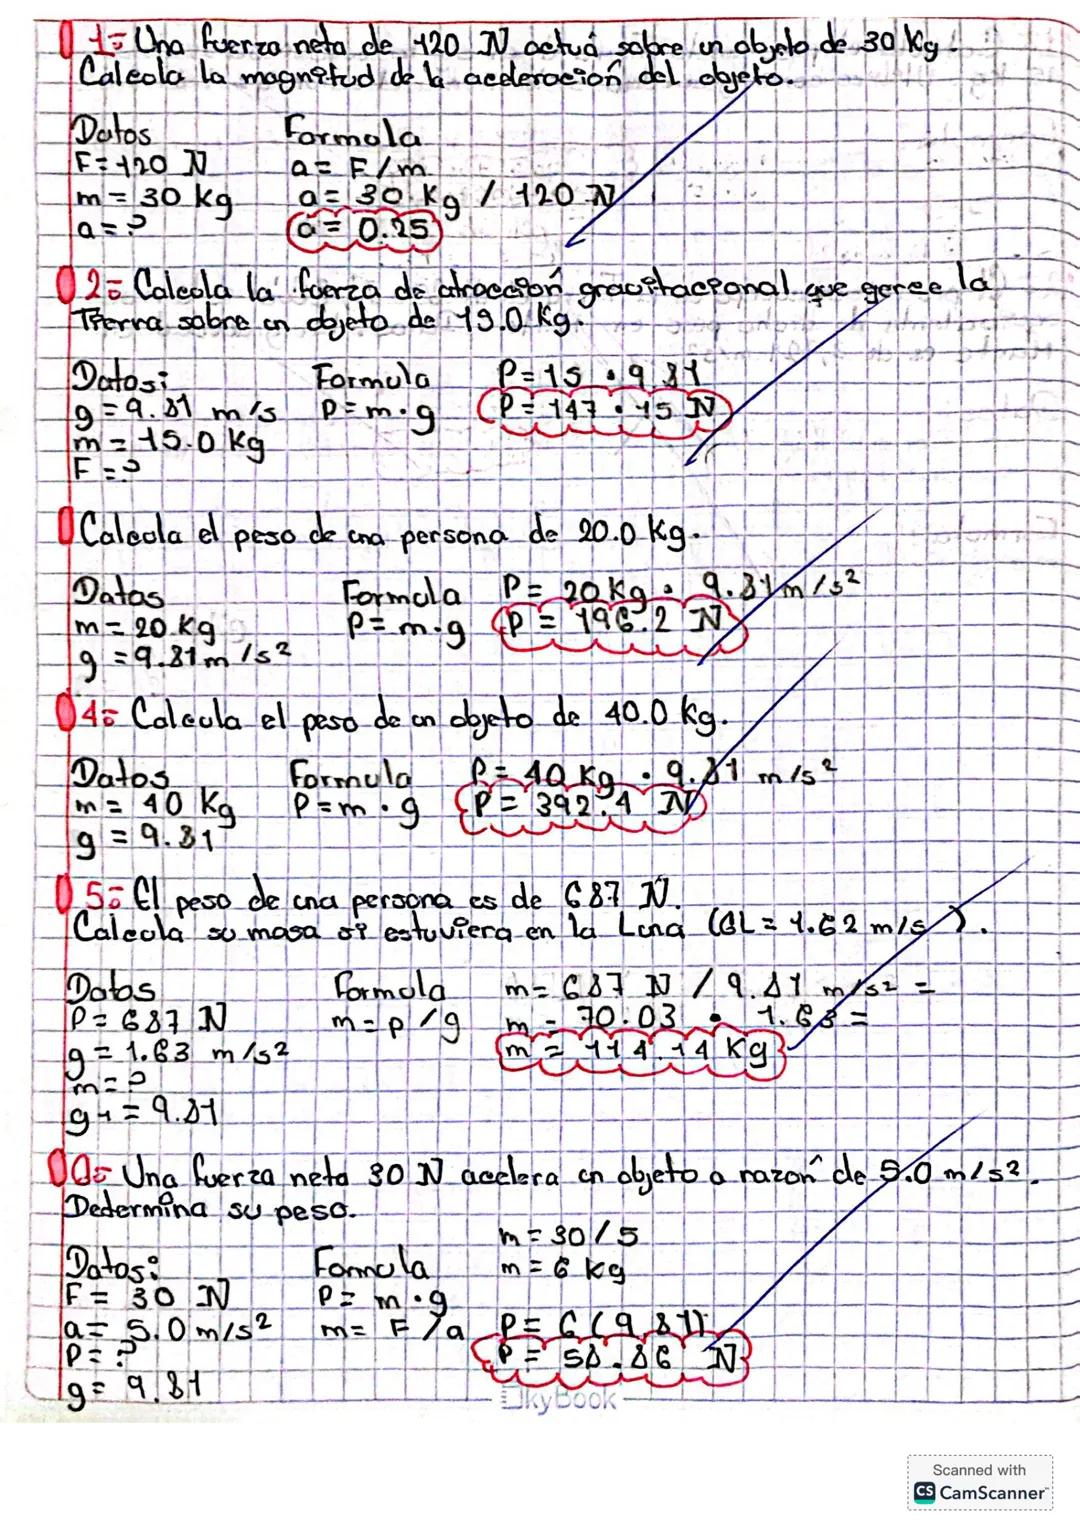 1.- Una fuerza neta de 120 N actuá sobre un objeto de 30 Kg.
Calcula la magnitud de la aceleracioń del objeto.
Datos Formula
F = 120 N a = F/m
m = 30 kg a = 30 Kg / 120 N
a = ? a = 0.25
2.- Calcula la fuerza de atraccioń gravitacional que gerce la
Tierra sobre un objeto de 15.0 Kg.
Datos: Formula P = 15 • 9.81
g = 9.81 m/s P = m • g P = 147 • 15 N
m = 15.0 kg
F = ?
Calcula el peso de una persona de 20.0 Kg.
Datos Formula P = 20 Kg • 9.81 m/s²
m = 20 Kg P = m • g P = 196.2 N
g = 9.81 m/s²
4.- Calcula el peso de un objeto de 40.0 kg.
Datos Formula P = 40 Kg • 9.81 m/s²
m = 40 Kg P = m • g P = 392.4 N
g = 9.81
5.- El peso de una persona es de 687 N.
Calcula su masa si estuviera en la Luna (GL = 1.62 m/s ).
Datos Formula m = 687 N / 9.81 m/s² =
P = 687 N m = p/g m = 70.03 • 1.63 =
g = 1.63 m/s² m = 114.14 Kg
m = ?
g1 = 9.81
Una fuerza neta 30 N acelera un objeto a razoń de 5.0 m/s².
Determina su peso.
m = 30/5
Datos: Formula m = 6 kg
F = 30 N P = m • g
a = 5.0 m/s² m = F/a P = 6(9.81)
P = ? P = 58.86 N
g = 9.81
SkyBook
Scanned with
CS CamScanner